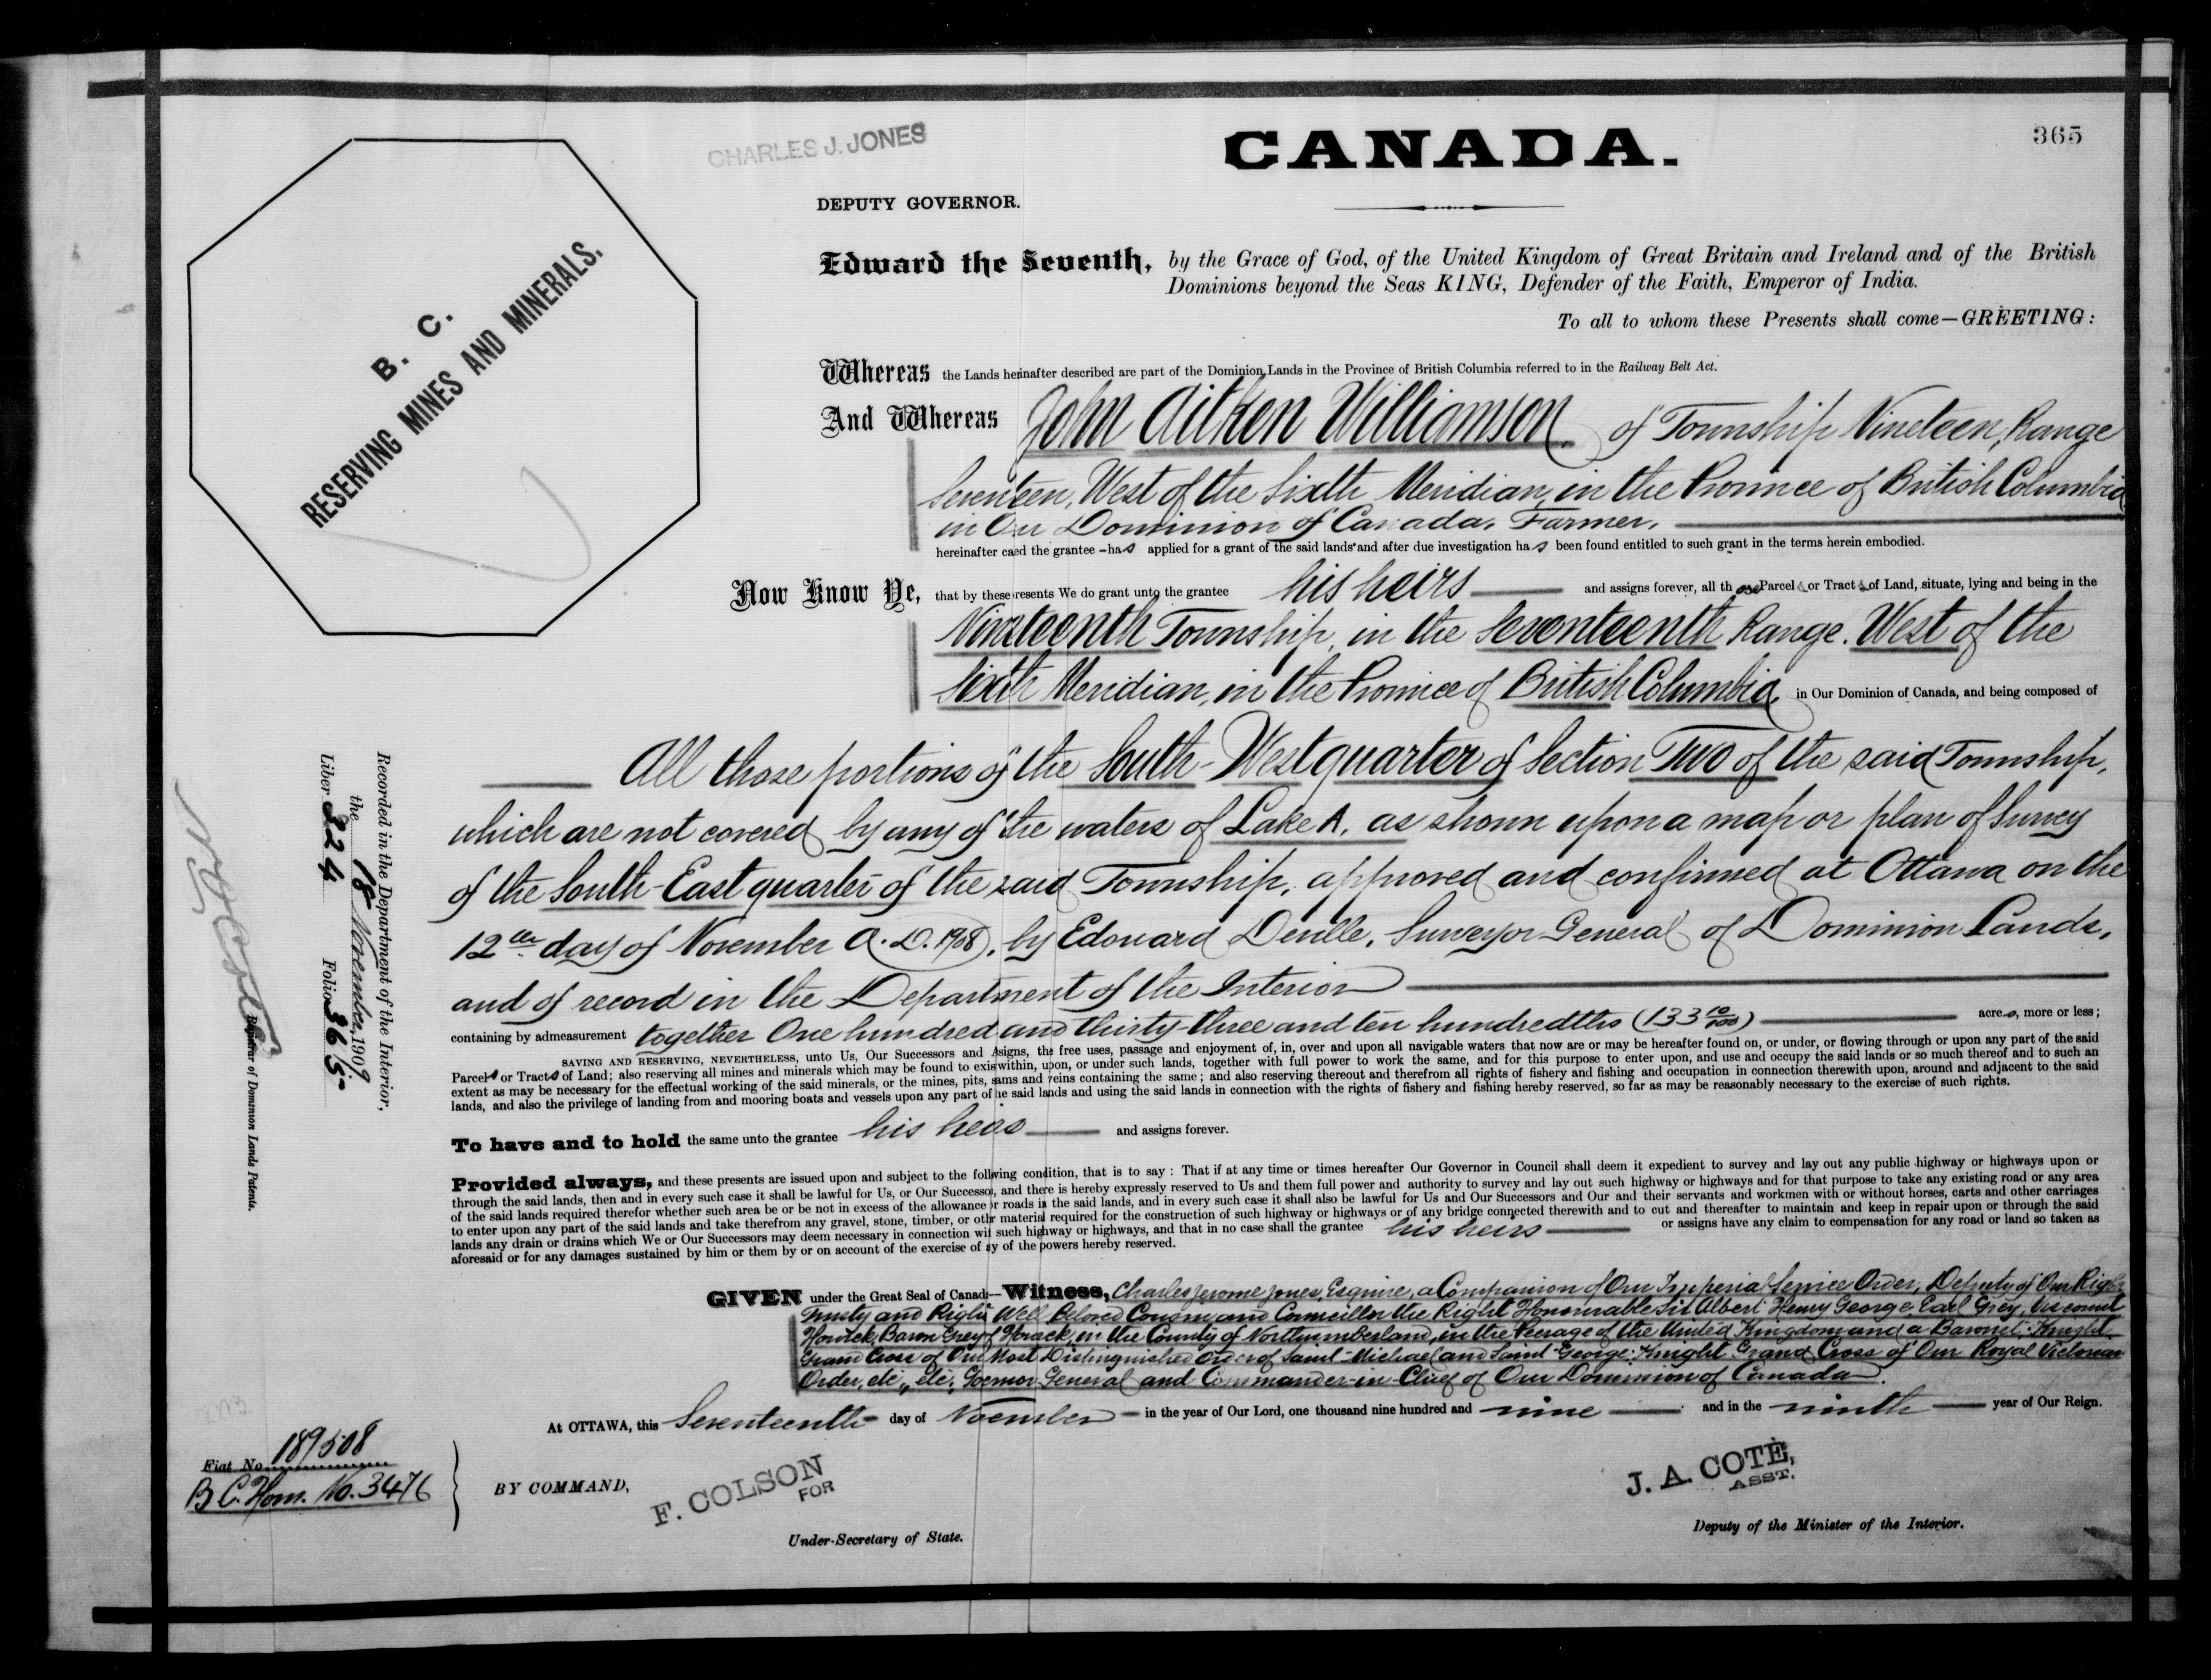 365
CHARLES J. JONES
CANADA.
DEPUTY GOVERNOR.
B. C.
RESERVING MINES AND MINERALS.
Edward the Seventh, by the Grace of God, of the United Kingdom of Great Britain and Ireland and of the British
Dominions beyond the Seas KING, Defender of the Faith, Emperor of India.
To all to whom these Presents shall come—GREETING:
Whereas the Lands herinafter described are part of the Dominion Lands in the Province of British Columbia referred to in the Railway Belt Act.
And Whereas John Aitken Williamson. of Township Nineteen, Range
Seventeen, West of the Sixth Meridian, in the Province of British Columbia
in Our Dominion of Canada, Farmer,
hereinafter caed the grantee – has applied for a grant of the said lands and after due investigation has been found entitled to such grant in the terms herein embodied.
Now Know Ye, that by these resents We do grant unto the grantee his heirs and assigns forever, all those Parcels or Tracts of Land, situate, lying and being in the
Nineteenth Township, in the Seventeenth Range. West of the
Sixth Meridian, in the Province of British Columbia, in Our Dominion of Canada, and being composed of
All those portions of the South-West quarter of Section Two of the said Township,
which are not covered by any of the waters of Lake A, as shown upon a map or plan of Survey
of the South-East quarter of the said Township, approved and confirmed at Ottawa on the
12th day of November A.D. 1908, by Edouard Deville, Surveyor General of Dominion Lands,
and of record in the Department of the Interior
containing by admeasurement together One hundred and thirty-three and ten hundredths (133 10/100) acres, more or less;
SAVING AND RESERVING, NEVERTHELESS, unto Us, Our Successors and Asigns, the free uses, passage and enjoyment of, in, over and upon all navigable waters that now are or may be hereafter found on, or under, or flowing through or upon any part of the said
Parcels or Tracts of Land; also reserving all mines and minerals which may be found to exis within, upon, or under such lands, together with full power to work the same, and for this purpose to enter upon, and use and occupy the said lands or so much thereof and to such an
extent as may be necessary for the effectual working of the said minerals, or the mines, pits, sams and veins containing the same; and also reserving thereout and therefrom all rights of fishery and fishing and occupation in connection therewith upon, around and adjacent to the said
lands, and also the privilege of landing from and mooring boats and vessels upon any part of he said lands and using the said lands in connection with the rights of fishery and fishing hereby reserved, so far as may be reasonably necessary to the exercise of such rights.
To have and to hold the same unto the grantee his heirs and assigns forever.
Provided always, and these presents are issued upon and subject to the follwing condition, that is to say: That if at any time or times hereafter Our Governor in Council shall deem it expedient to survey and lay out any public highway or highways upon or
through the said lands, then and in every such case it shall be lawful for Us, or Our Successos, and there is hereby expressly reserved to Us and them full power and authority to survey and lay out such highway or highways and for that purpose to take any existing road or any area
of the said lands required therefor whether such area be or be not in excess of the allowance or roads in the said lands, and in every such case it shall also be lawful for Us and Our Successors and Our and their servants and workmen with or without horses, carts and other carriages
to enter upon any part of the said lands and take therefrom any gravel, stone, timber, or othr material required for the construction of such highway or highways or of any bridge connected therewith and to cut and thereafter to maintain and keep in repair upon or through the said
lands any drain or drains which We or Our Successors may deem necessary in connection wit such highway or highways, and that in no case shall the grantee his heirs or assigns have any claim to compensation for any road or land so taken as
aforesaid or for any damages sustained by him or them by or on account of the exercise of ay of the powers hereby reserved.
GIVEN under the Great Seal of Canada:—Witness, Charles Jerome Jones, Esquire, a Companion of Our Imperial Service Order, Deputy of Our Right
Trusty and Right Well Beloved Cousin and Councillor the Right Honourable Sir Albert Henry George, Earl Grey, Viscount
Howick, Baron Grey of Howick, in the County of Northumberland, in the Peerage of the United Kingdom and a Baronet: Knight
Grand Cross of Our Most Distinguished Order of Saint-Michael and Saint-George: Knight Grand Cross of Our Royal Victorian
Order, etc., etc., Governor General and Commander-in-Chief of Our Dominion of Canada.
At OTTAWA, this Seventeenth day of November in the year of Our Lord, one thousand nine hundred and nine and in the ninth year of Our Reign.
Fiat No. 189508
B.C. Hom. No. 3476
BY COMMAND,
F. COLSON
FOR
Under-Secretary of State.
J. A. COTÉ,
ASST.
Deputy of the Minister of the Interior.
Recorded in the Department of the Interior,
the 18 November, 1909
Liber 224 Folio 365
Registrar of Dominion Lands Patents.